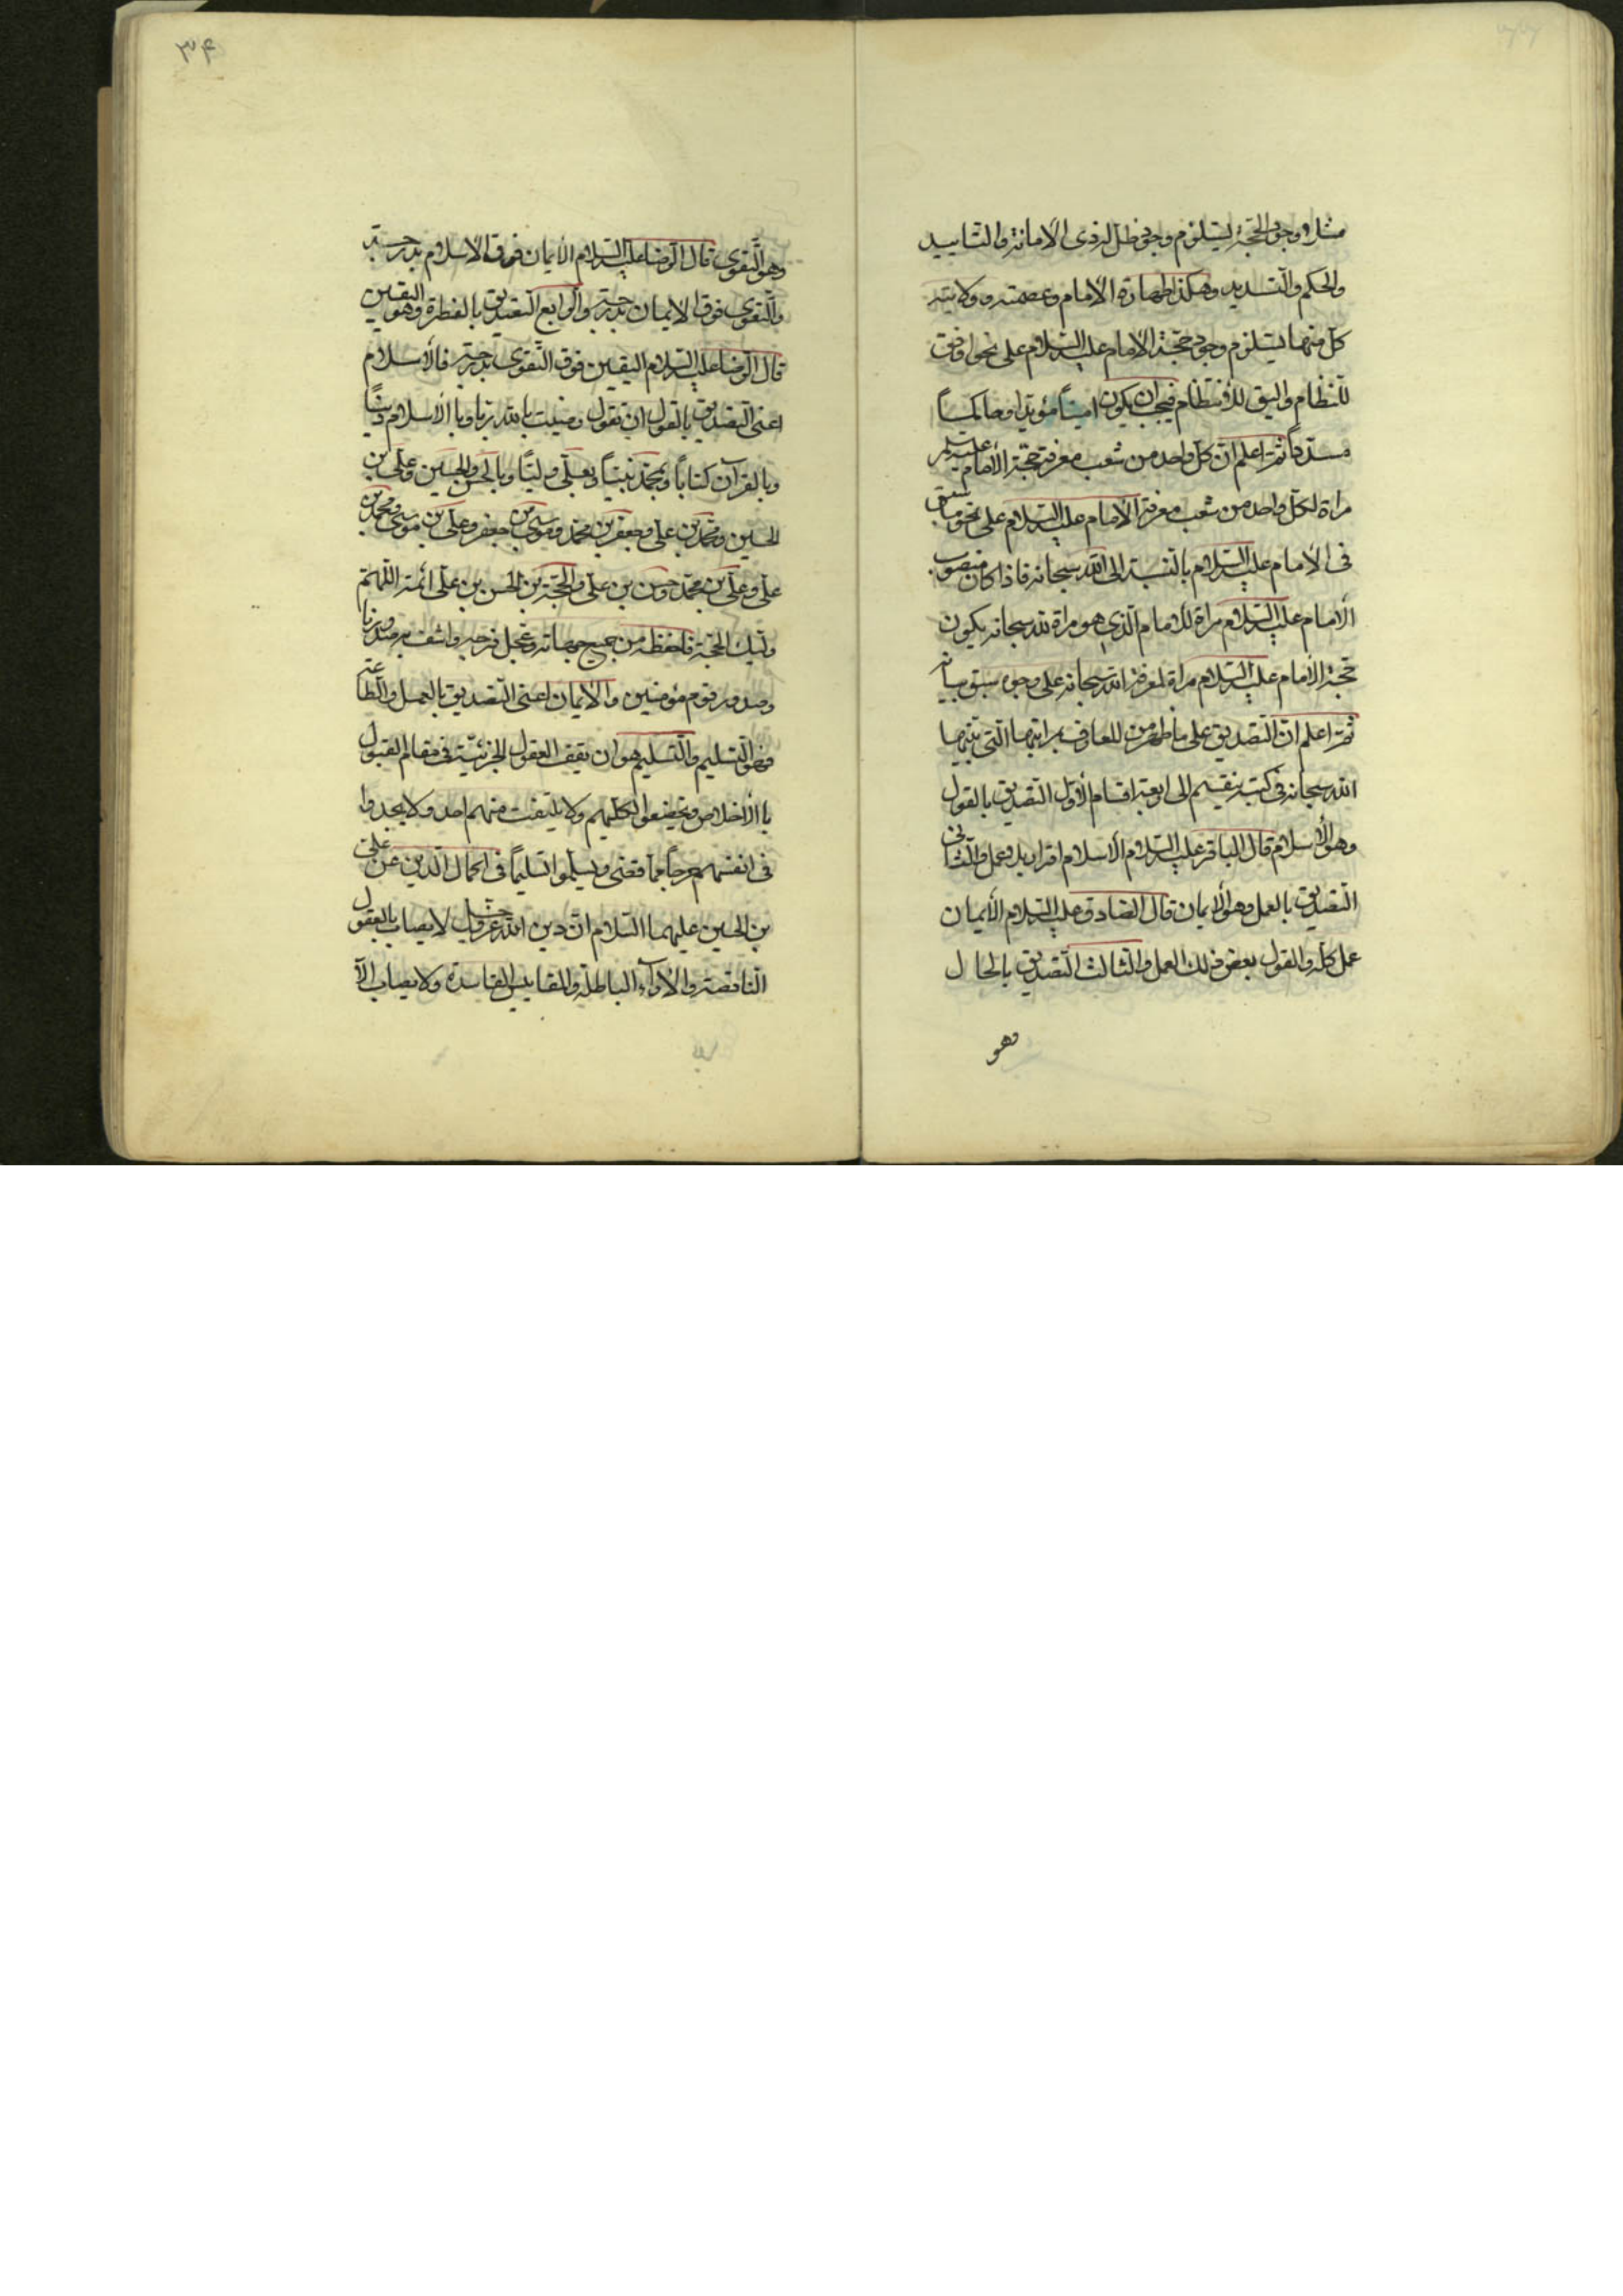 مثلا وجود الحجة يستلزم وجود ظل لذى الامانة والتاييد
والحكم والتسديد وهكذا طهارة الامام وعصمته وولايته
كل منها يستلزم وجود حجة الامام عليه السلام على نحو اوفق
للنظام واليق للانتظام فيجب ان يكون امينا مؤيدا وحاكما
مسددا ثم اعلم ان كل واحد من شعب معرفة حجة الامام عليه السلم
مراة لكل واحد من شعب معرفة الامام عليه السلام على نحو ما سبق
فى الامام عليه السلام بالنسبة الى الله سبحانه فاذا كان منصوب
الامام عليه السلام مراة للامام الذي هو مراة لله سبحانه يكون
حجة الامام عليه السلام مراة لمعرفة الله سبحانه على وجوه سبق بيانه
ثم اعلم ان التصديق على ما ظهر من للعارف براتبها التى بينها
الله سبحانه فى كتبه ينقسم الى اربعة اقسام الاول التصديق بالقول
وهو الاسلام قال الباقر عليه السلام الاسلام اقرار بلا عمل والثانى
التصديق بالعمل وهو الايمان قال الصادق عليه السلام الأيمان
عمل كله والقول بعض ذلك العمل والثالث التصديق بالحال
وهو
۳۴
وهو التقوى قال الرضا عليه السلام الايمان فوق الاسلام بدرجة
والتقوى فوق الايمان بدرجة والرابع التصديق بالفطرة وهو اليقين
قال الرضا عليه السلام اليقين فوق التقوى بدرجة فالأسلام
اعنى التصديق بالقول ان تقول رضيت بالله ربا وبا الأسلام دينًا
وبالقرآن كتاباً وبمحمد نبيًا وبعلى وليًا وبالحسن والحسين وعلى بن
الحسين ومحمد بن على وجعفر بن محمد وموسى بن جعفر وعلى بن موسى ومحمد بن
على وعلى بن محمد وحسن بن على والحجة بن الحسن بن على ائمة اللهم
وليك الحجة فاحفظه من جميع جهاته وعجل فرجه واشف به صدورنا
وصدور قوم مؤمنين والأيمان اعنى التصديق بالعمل والطاعة
فهو التسليم والتسليم هو ان يقف العقول الجزئية فى مقام القبول
با الأخلاص ويخضعوا بكلهم ولا يلتفت منهم احد ولا يجدوا
فى انفسهم حرجاً مما قضى ويسلموا تسليماً فى اكمال الدين عن على
بن الحسين عليهما السلام ان دين الله عز وجل لا يصاب بالعقول
الناقصة والاراء الباطلة والمقاييس الفاسدة ولا يصاب الا